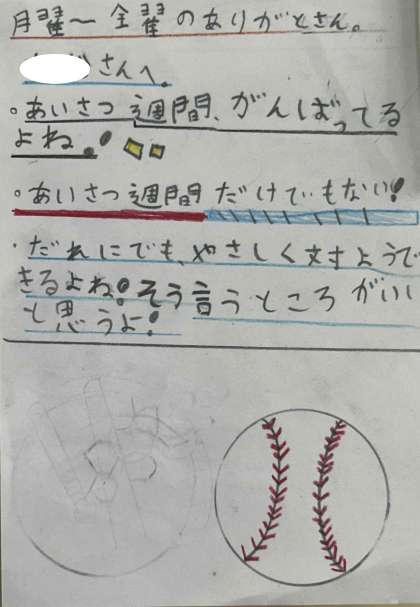 月曜〜金曜のありがとさん。
さんへ。
。あいさつ週間、がんばってる
よね。!
。あいさつ週間だけでいもない!
・だれにでも、やさしく対ようで
きるよね!そう言うところがいい
と思うよ!